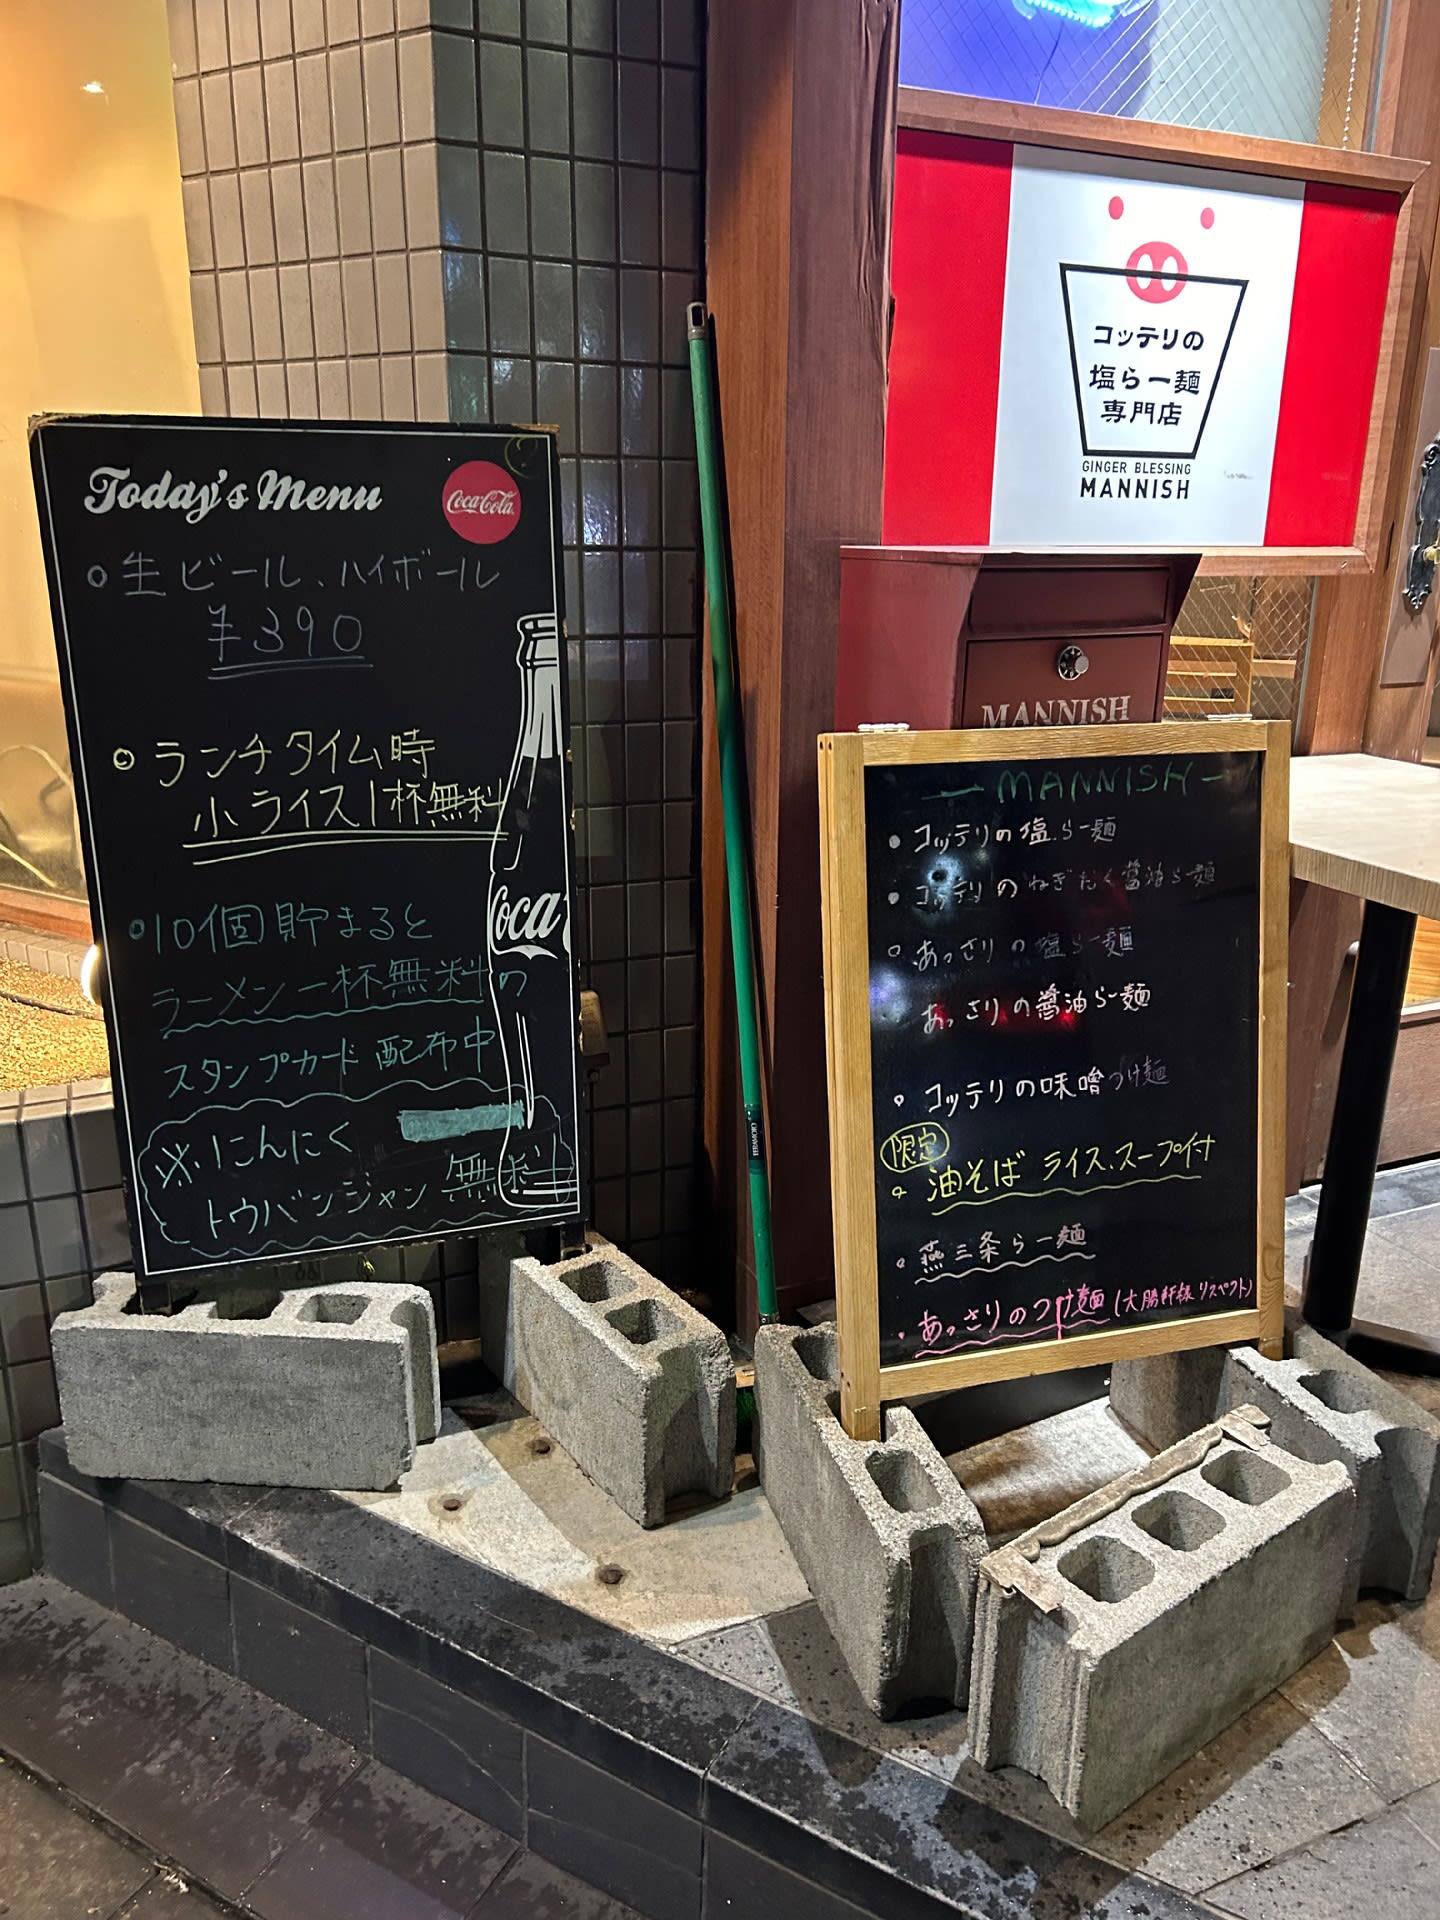 Today's Menu
Coca-Cola
○生ビール、ハイボール
¥390
○ランチタイム時
小ライス1杯無料
・10個貯まると
ラーメン一杯無料の
スタンプカード配布中
※にんにく
トウバンジャン 無料
Coca
コッテリの
塩らー麺
専門店
GINGER BLESSING
MANNISH
MANNISH
ー MANNISH ー
・コッテリの塩らー麺
・コッテリのねぎだく醤油らー麺
・あっさりの塩らー麺
あっさりの醤油らー麺
・コッテリの味噌つけ麺
限定
・油そば ライス、スープ付
・燕三条らー麺
・あっさりのつけ麺(大勝軒様リスペクト)